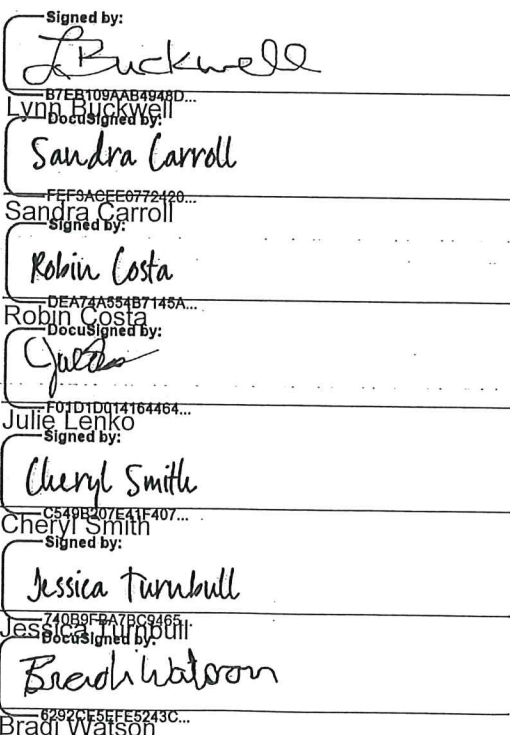 Signed by:
L Buckwell
B7EB109AAB4948D...
Lynn Buckwell
DocuSigned by:
Sandra Carroll
FEF3ACEE0772420...
Sandra Carroll
Signed by:
Robin Costa
DEA74A554B7145A...
Robin Costa
DocuSigned by:
F01D1D014164464...
Julie Lenko
Signed by:
Cheryl Smith
C549B207E41F407...
Cheryl Smith
Signed by:
Jessica Turnbull
740B9FBA7BC9465...
Jessica Turnbull
DocuSigned by:
Bradi Watson
6292CE5EFE5243C...
Bradi Watson